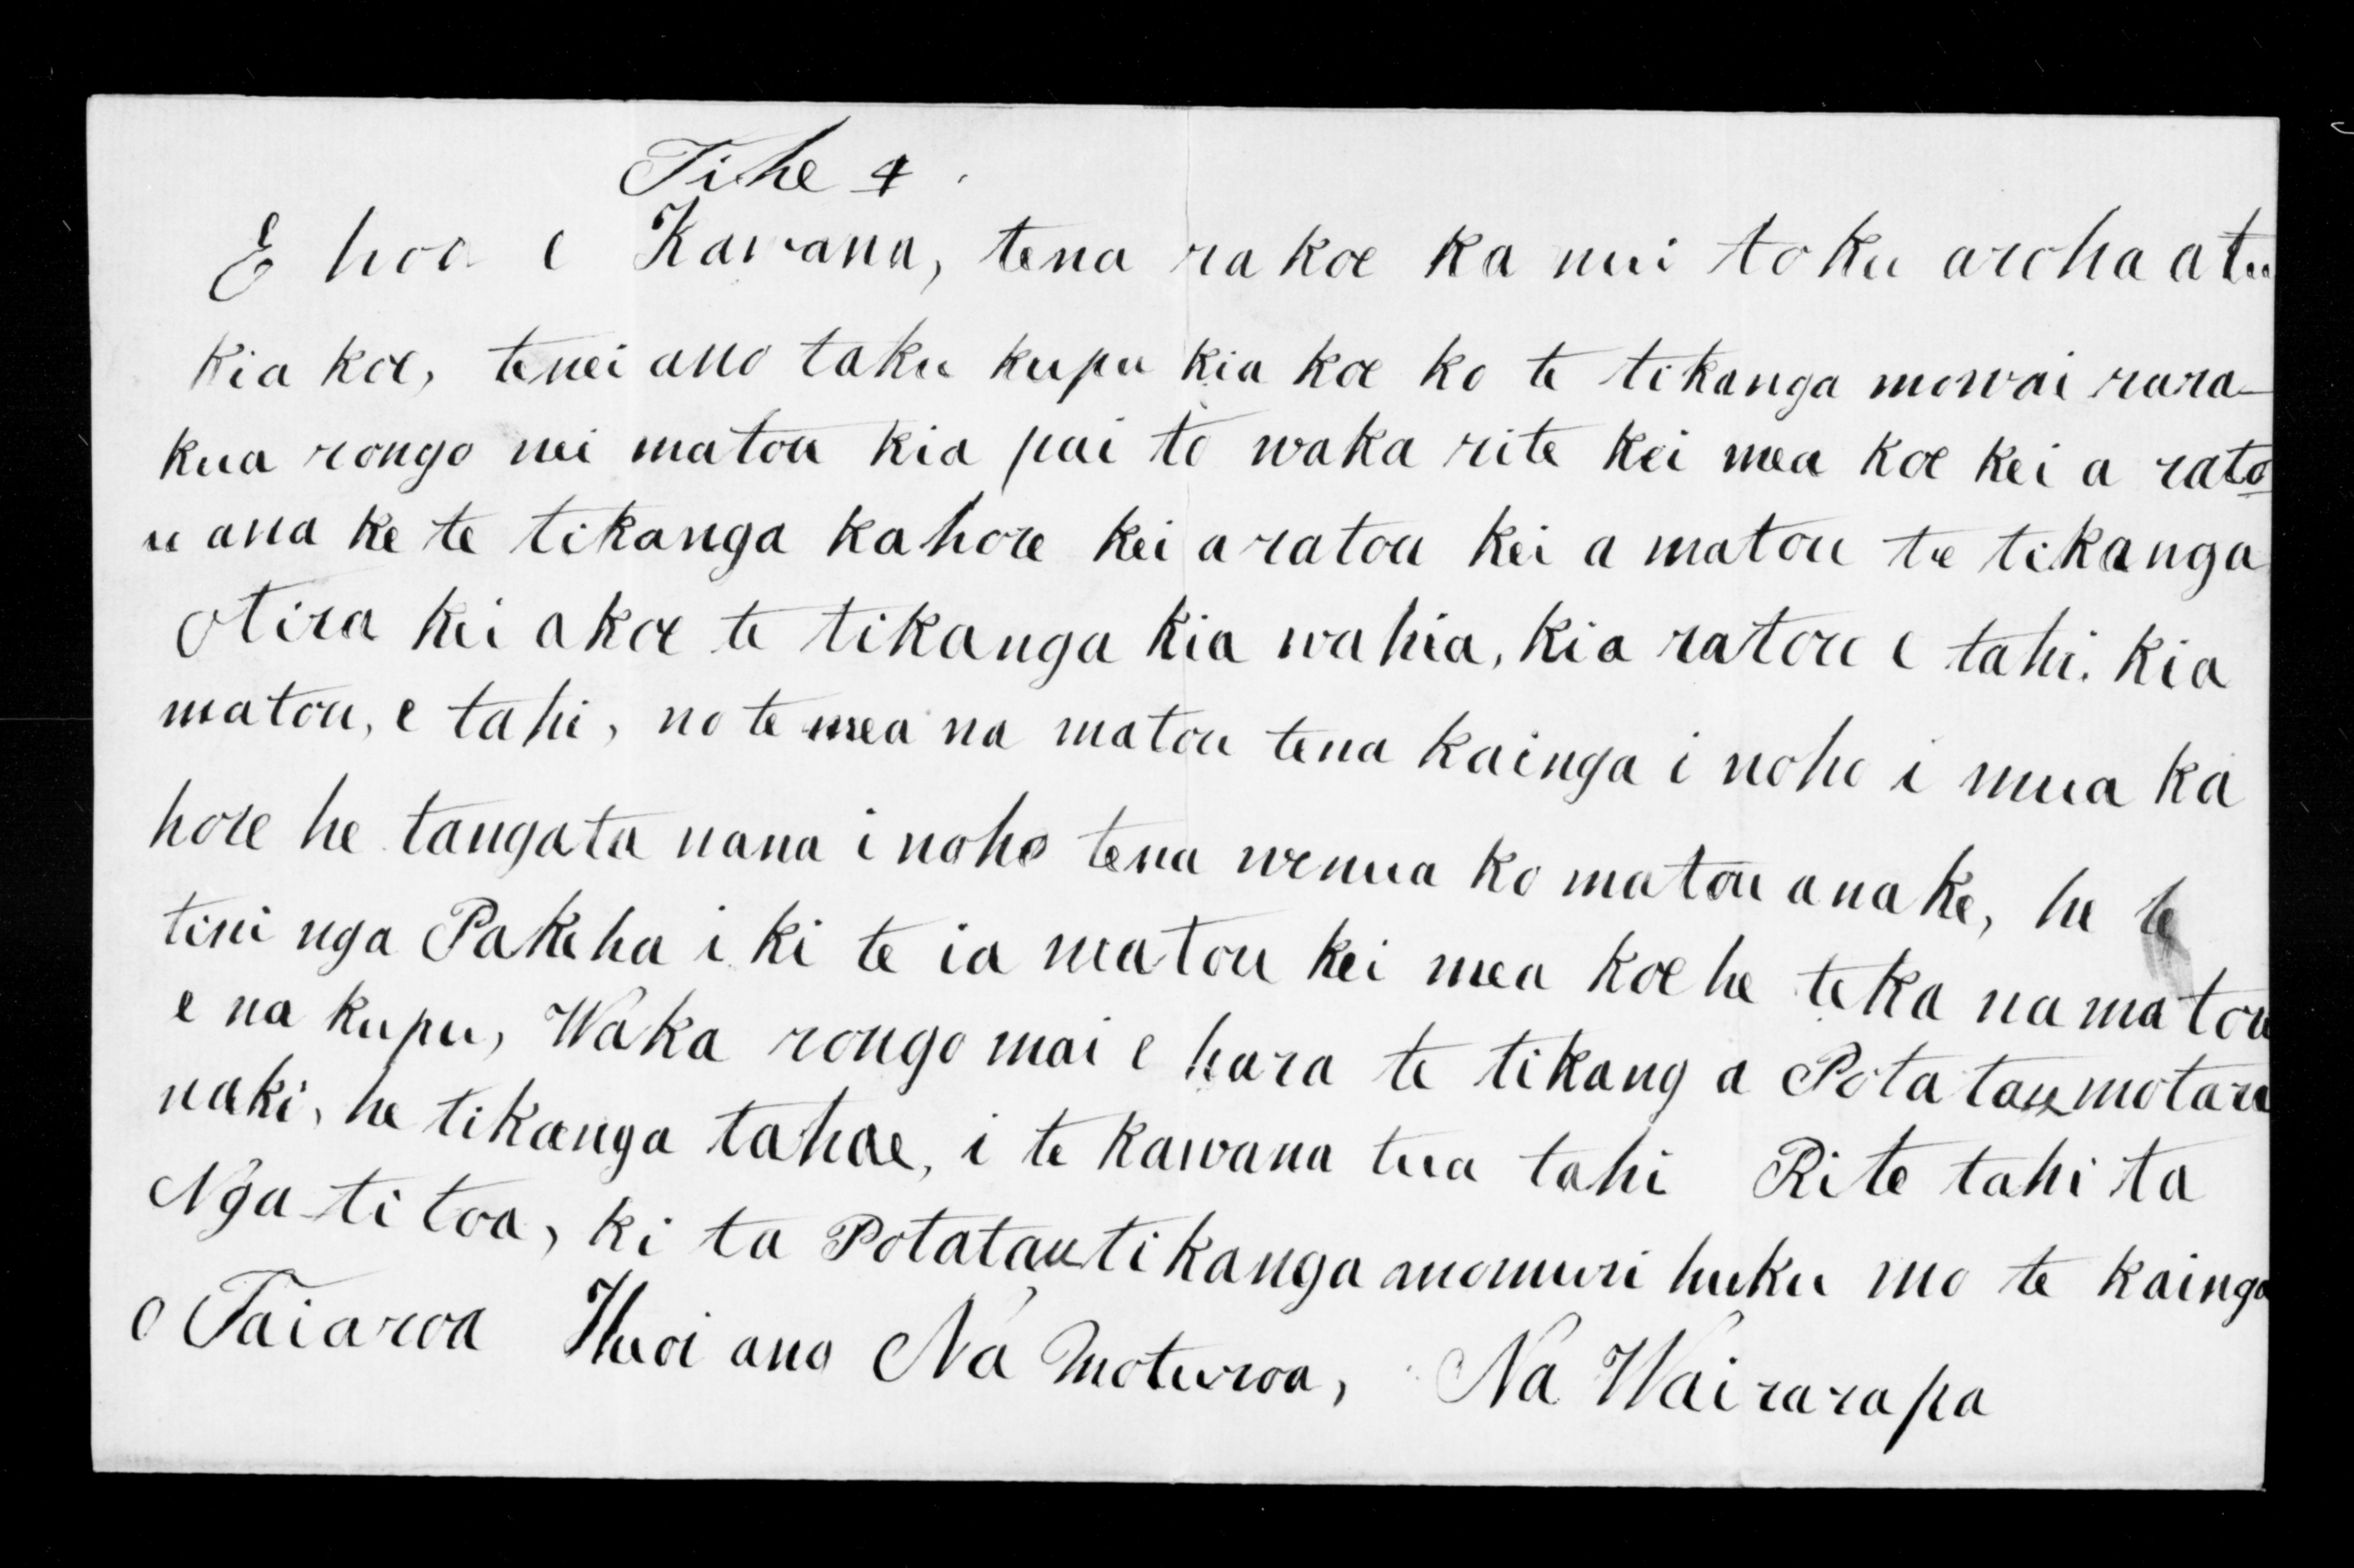 Tihe 4.
E hoa e Kawana, tena ra koe ka nui toku aroha atu
kia koe, tenei ano taku kupu kia koe ko te tikanga mowai rara-
kua rongo nei matou kia pai to waka rite kei mea koe kei a rato
u ana ke te tikanga kahore kei a ratou kei a matou te tikanga
Otira kei a koe te tikanga kia wahia, kia ratou e tahi. kia
matou, e tahi, no te mea na matou tena kainga i noho i mua ka
hore he tangata nana i noho tena wenua ko matou ana ke, he te
tini nga Pakeha i ki te ia matou kei mea koe he teka na matou
e na kupu, Waka rongo mai e hara te tikang a Potatau motara
naki, he tikanga tahae, i te kawana tua tahi Rite tahi ta
Nga-ti toa, ki ta Potatau tikanga momuri huku mo te kainga
o Taiaroa Heoi ano Na Moturoa, Na Wairarapa